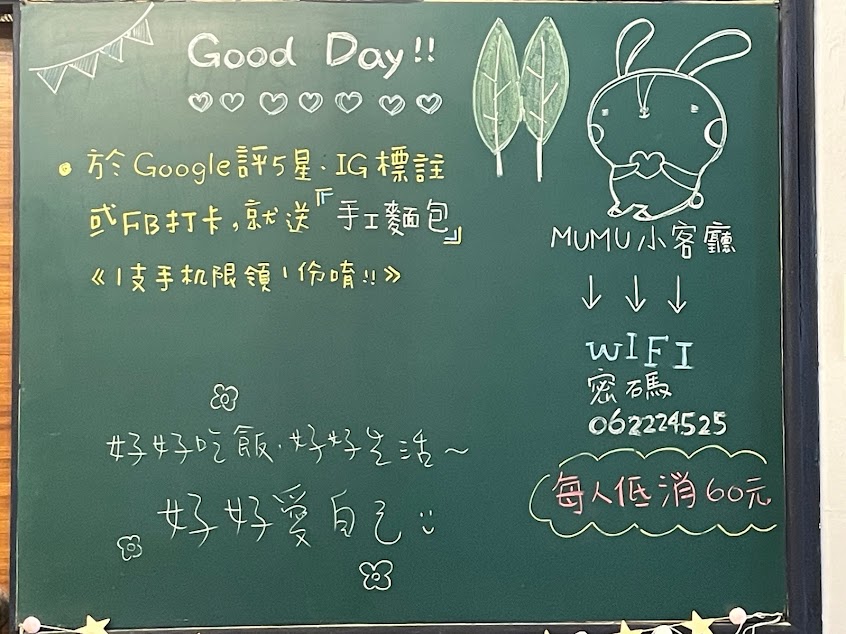 Good Day!!
• 於Google評5星、IG標註
或FB打卡,就送『手工麵包』
《1支手机限領1份唷!!》
MUMU小客廳
↓ ↓ ↓
WIFI
密碼
062224525
每人低消60元
好好吃飯.好好生活~
好好愛自己